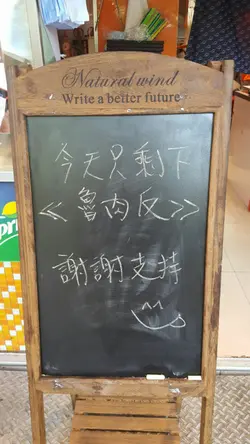 Natural wind
Write a better future
今天只剩下
《魯肉反》
謝謝支持